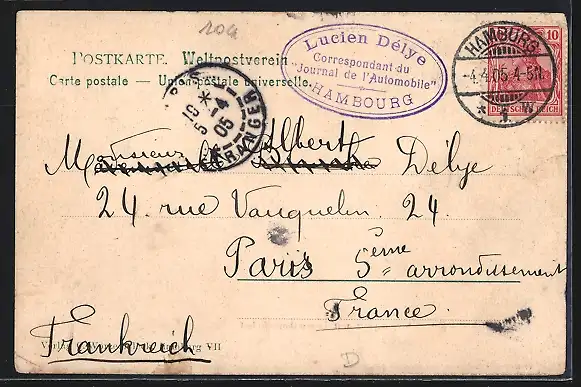 104
POSTKARTE. Weltpostverein.
Carte postale — Union postale universelle.
Lucien Délye
Correspondant du
"Journal de l'Automobile"
HAMBOURG
HAMBURG
-4.4.05.4-5N.
* 1 w
10
DEUTSCHES REICH
5-4
05
ETRANGER
Monsieur Albert Délye
24. rue Vauquelin. 24.
Paris 5ème arrondissement
France.
Frankreich
Hamburg VII
D